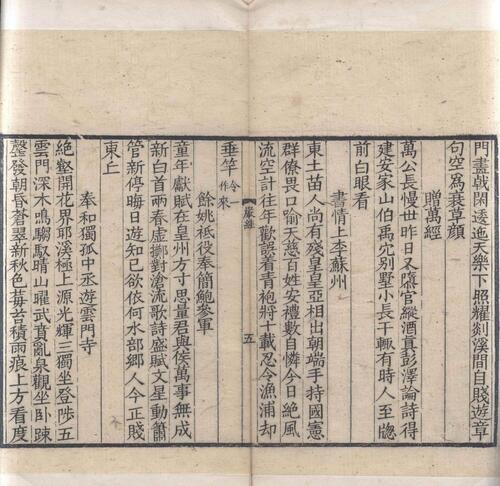 門畫戟閑逶迤天樂下照耀剡溪間自賤遊章
句空爲衰草顔
贈萬經
萬公長慢世昨日又隳官縱酒真彭澤論詩得
建安家山伯禹穴別墅小長干輒有時人至牕
前白眼看
書情上李蘇州
東土苗人尚有殘皇皇亞相出朝端手持國憲
群僚畏口喻天慈百姓安禮數自憐今日絶風
流空計往年歡誤着青袍將十載忍令漁浦却
垂竿令一作來
嚴維 五
餘姚祗役奉簡鮑參軍
童年獻賦在皇州方寸思量君與侯萬事無成
新白首兩春虛擲對滄流歌詩盛賦文星動簫
管新停晦日遊知己欲依何水部鄉人今正賤
東丘
奉和獨孤中丞遊雲門寺
絶壑開花界耶溪極上源光輝三獨坐登陟五
雲門深木鳴騶馭晴山曜武賁亂泉觀坐卧踈
磬發朝昏蒼翠新秋色莓苔積雨痕上方看度